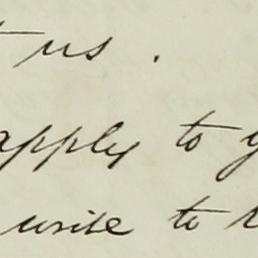 us.
apply to
write to